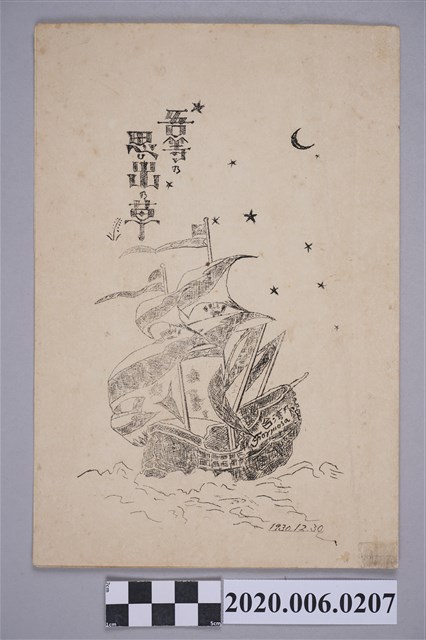 吾等の
思出の草
Formosa
1930.12.30
1cm
5cm
2020.006.0207